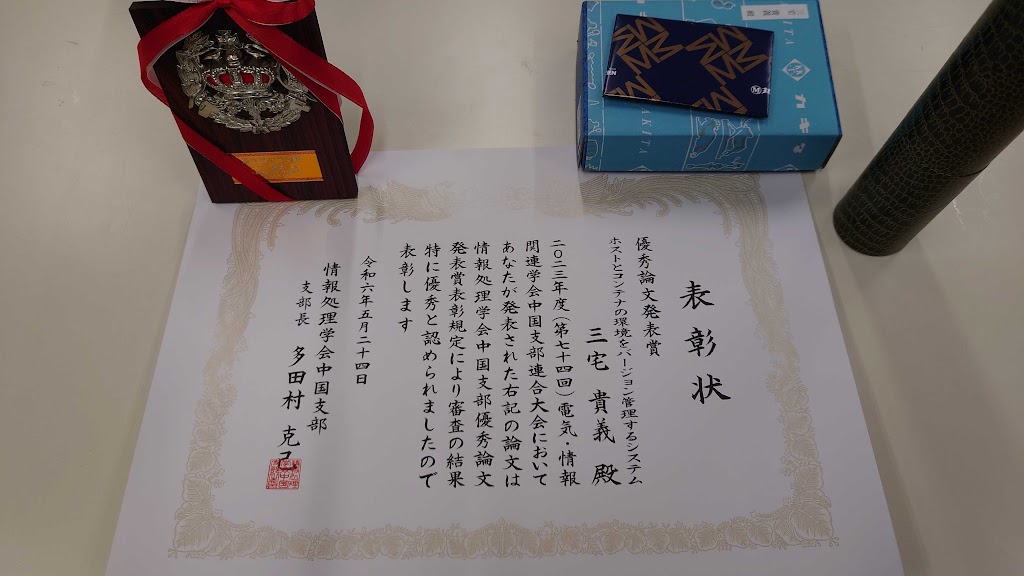 表彰状
優秀論文発表賞
ホストとコンテナの環境をバージョン管理するシステム
三宅 貴義 殿
二〇二三年度(第七十四回)電気・情報
関連学会中国支部連合大会において
あなたが発表された右記の論文は
情報処理学会中国支部優秀論文
発表賞表彰規定により審査の結果
特に優秀と認められましたので
表彰します
令和六年五月二十四日
情報処理学会中国支部
支部長 多田村 克己
カキタ
AKITA